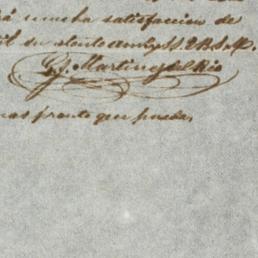 á mucha satisfaccion de
su atento amigo S. S. Q. B. S. M.
J. Martinez del Rio
mas pronto que pueda,